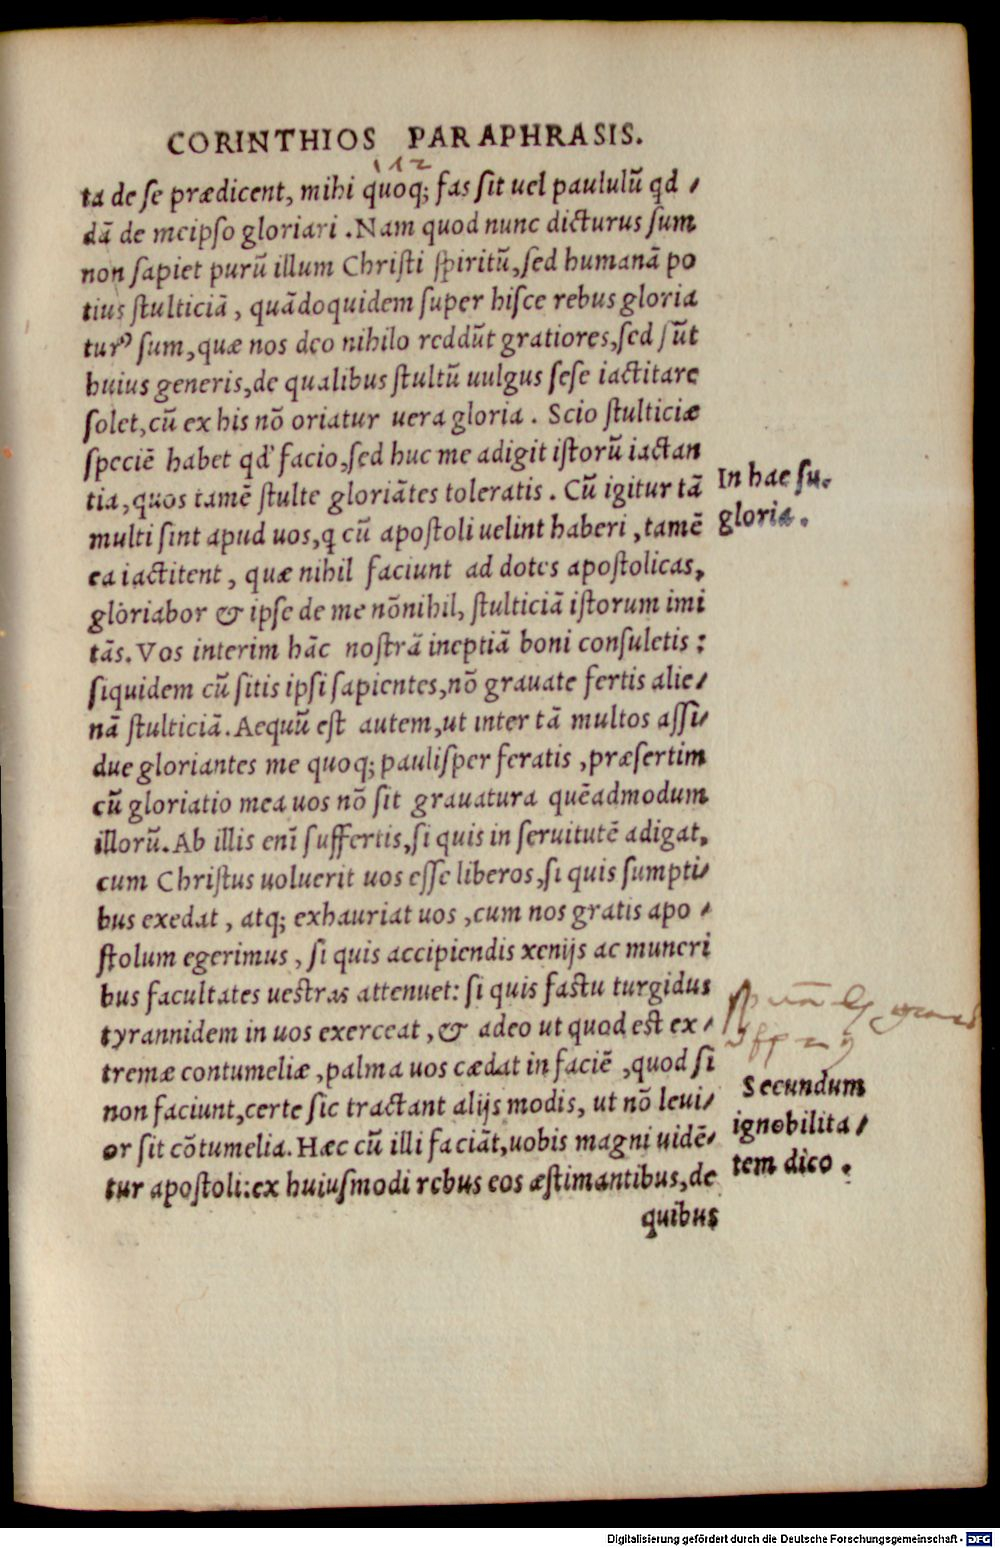 CORINTHIOS PARAPHRASIS.
ta de se prædicent, mihi quoq; fas sit uel paululũ qd /
dã de meipso gloriari . Nam quod nunc dicturus sum
non sapiet purũ illum Christi spiritũ, sed humanã po
tius stulticiã, quãdoquidem super hisce rebus gloria
turꝰ sum, quæ nos deo nihilo reddũt gratiores, sed sũt
huius generis, de qualibus stultũ uulgus sese iactitare
solet, cũ ex his nõ oriatur uera gloria . Scio stulticiæ
speciẽ habet qd' facio, sed huc me adigit istorũ iactan
tia, quos tamẽ stulte gloriãtes toleratis . Cũ igitur tã
In hac su.
multi sint apud uos, q cũ apostoli uelint haberi, tamẽ
gloria.
ea iactitent, quæ nihil faciunt ad dotes apostolicas,
gloriabor & ipse de me nõnihil, stulticiã istorum imi
tãs. Vos interim hãc nostrã ineptiã boni consuletis :
siquidem cũ sitis ipsi sapientes, nõ grauate fertis alie/
nã stulticiã. Aequũ est autem, ut inter tã multos assi/
due gloriantes me quoq; paulisper feratis, præsertim
cũ gloriatio mea uos nõ sit grauatura quẽadmodum
illorũ. Ab illis enĩ suffertis, si quis in seruitutẽ adigat,
cum Christus uoluerit uos esse liberos, si quis sumpti/
bus exedat, atq; exhauriat uos, cum nos gratis apo /
stolum egerimus, si quis accipiendis xenijs ac muneri
bus facultates uestras attenuet: si quis fastu turgidus
tyrannidem in uos exerceat, & adeo ut quod est ex/
tremæ contumeliæ, palma uos cædat in faciẽ, quod si
Secundum
non faciunt, certe sic tractant alijs modis, ut nõ leui/
ignobilita/
or sit cõtumelia. Hæc cũ illi faciãt, uobis magni uidẽ/
tem dico.
tur apostoli: ex huiusmodi rebus eos æstimantibus, de
quibus
Digitalisierung gefördert durch die Deutsche Forschungsgemeinschaft - DFG